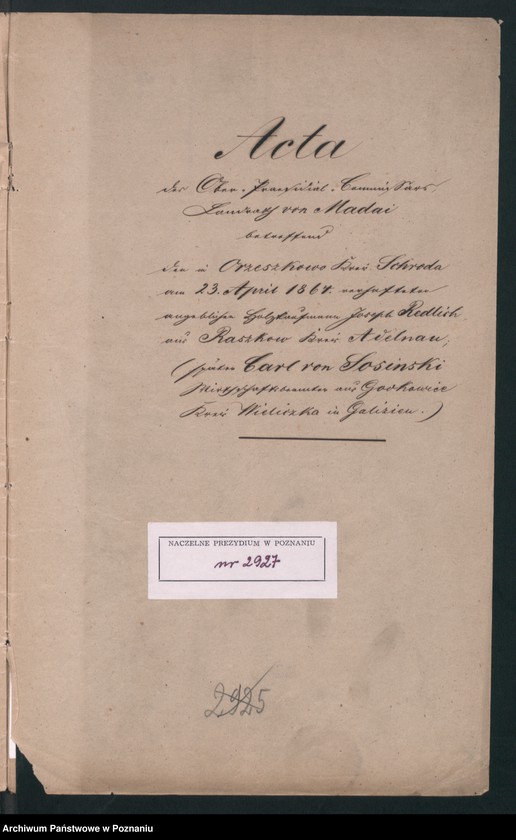 Acta
des Ober-Praesidial-Commissars
Landrath von Madai
betreffend
den in Orzeszkowo Kreis Schroda
am 23. April 1864. verhafteten
angeblichen Holzkaufmann Joseph Redlich
aus Raszkow Kreis Adelnau,
(später Carl von Sosinski
Wirthschaftsbeamter aus Gorkowice
Kreis Wieliczka in Galizien.)
NACZELNE PREZYDIUM W POZNANIU
nr 2927
2925
Archiwum Państwowe w Poznaniu